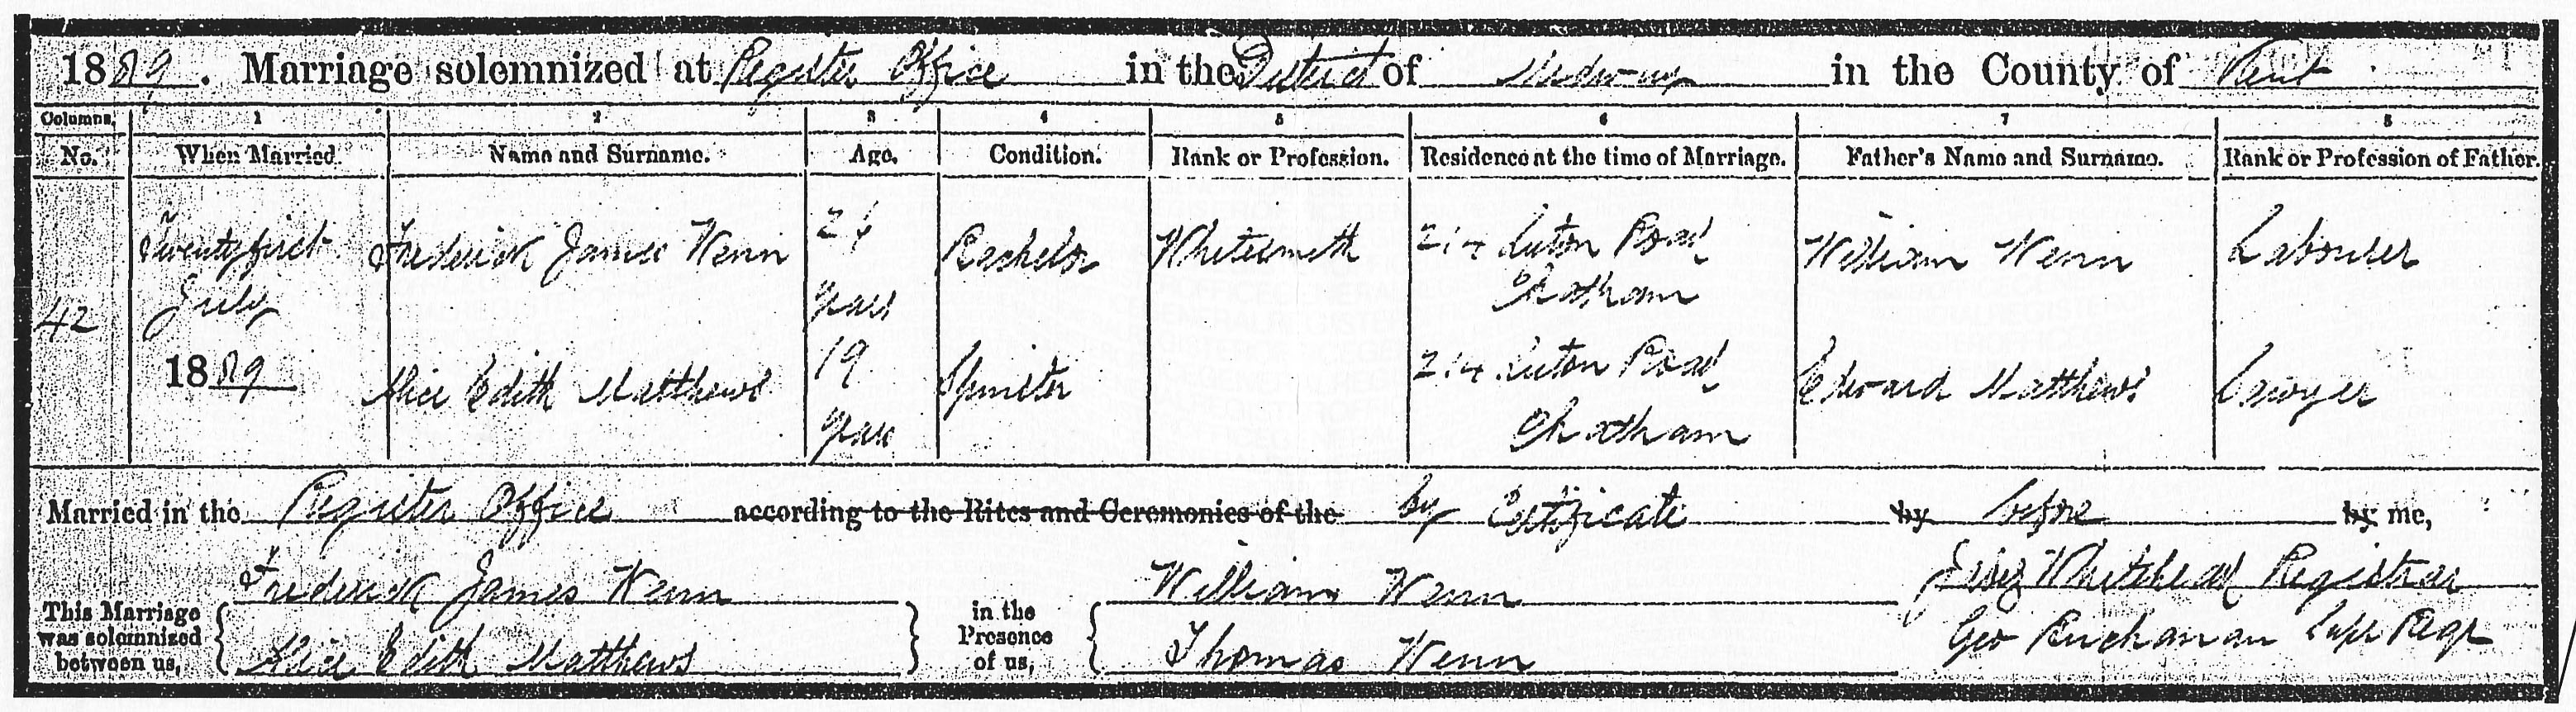 1889. Marriage solemnized at Register Office in the District of Medway in the County of Kent
Columns. 1 2 3 4 5 6 7 8
No. When Married. Name and Surname. Age. Condition. Rank or Profession. Residence at the time of Marriage. Father's Name and Surname. Rank or Profession of Father.
42 Twenty first July 1889
Frederick James Wenn 24 years Bachelor Whitesmith 214 Luton Road Chatham William Wenn Labourer
Alice Edith Matthews 19 years Spinster 214 Luton Road Chatham Edward Matthews Sawyer
Married in the Register Office according to the Rites and Ceremonies of the by Certificate by before by me,
This Marriage was solemnized between us, Frederick James Wenn Alice Edith Matthews
in the Presence of us, William Wenn Thomas Wenn
Whitehead Registrar
Geo Buchanan Supt Regr